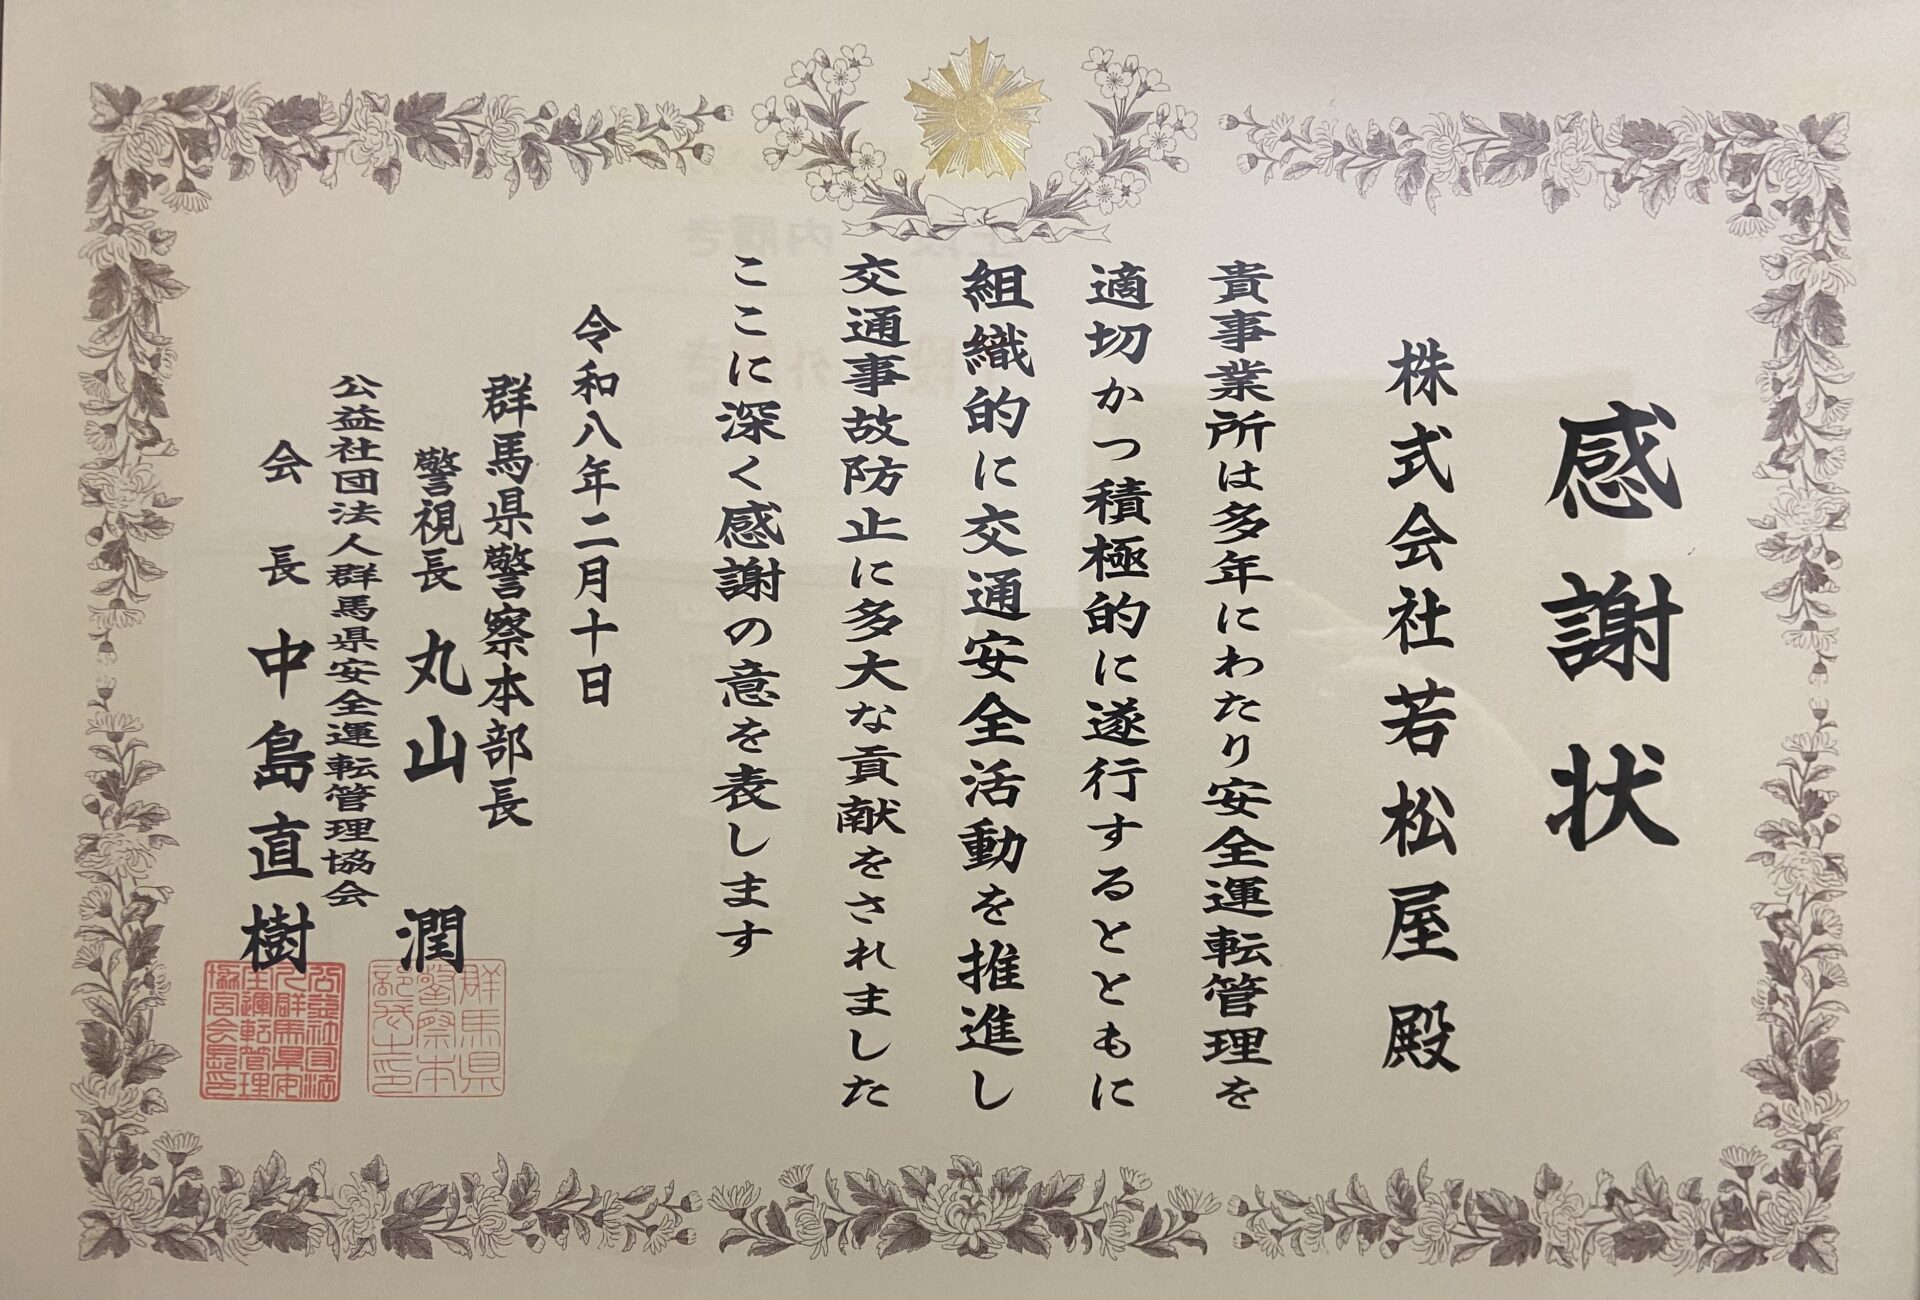 感謝状
株式会社若松屋殿
貴事業所は多年にわたり安全運転管理を
適切かつ積極的に遂行するとともに
組織的に交通安全活動を推進し
交通事故防止に多大な貢献をされました
ここに深く感謝の意を表します
令和八年二月十日
群馬県警察本部長
警視長 丸山 潤
群馬県警察本部長之印
公益社団法人群馬県安全運転管理協会
会長 中島直樹
公益社団法人群馬県安全運転管理協会会長印